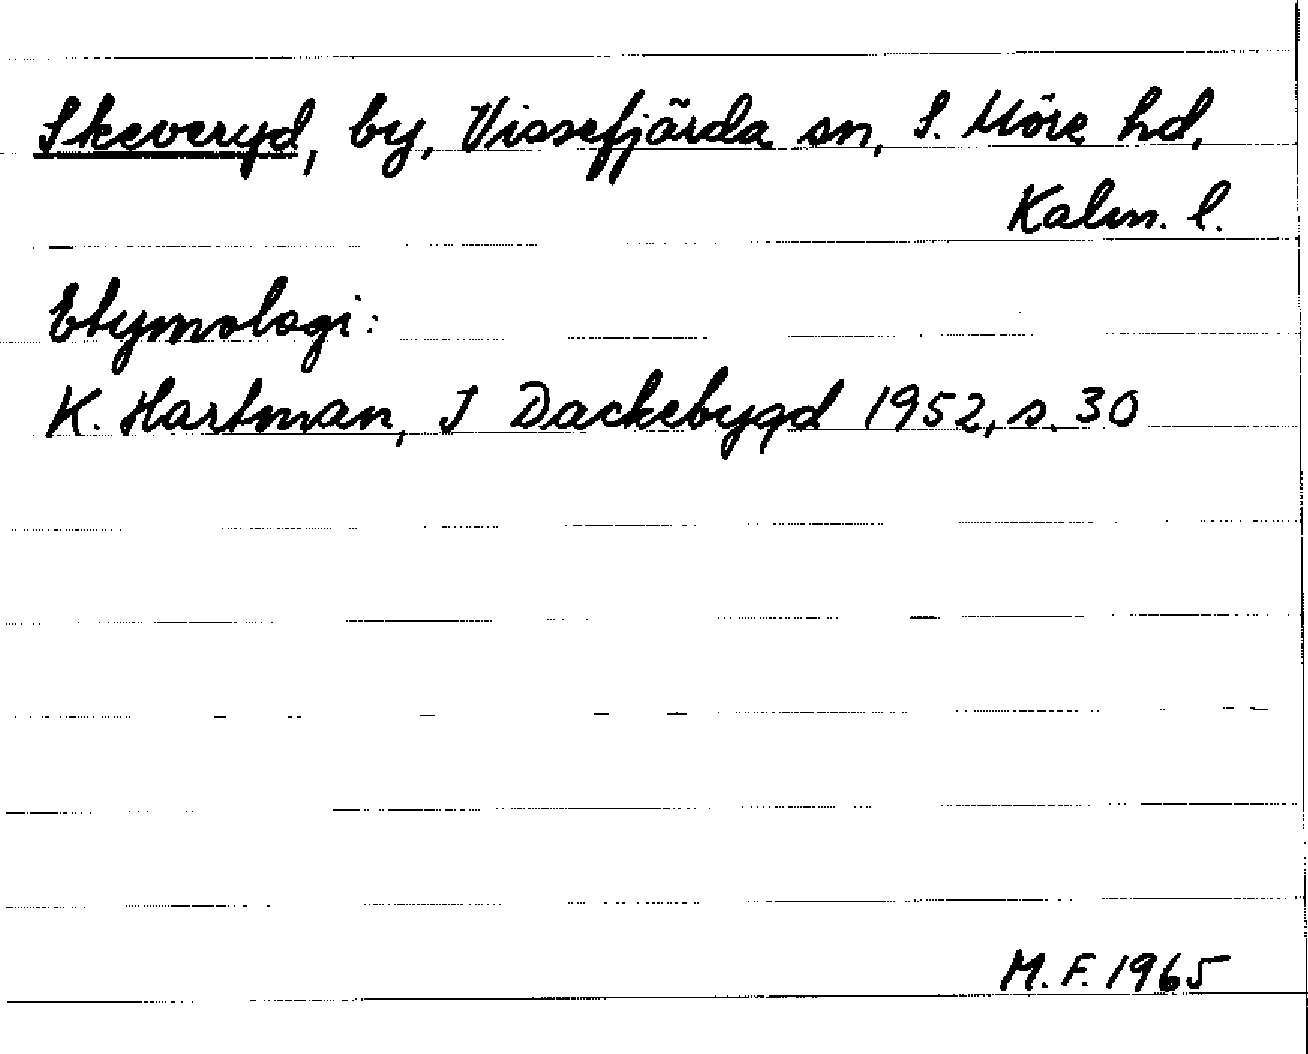 Skeveryd, by, Vissefjärda sn, S. Möre hd,
Kalm. l.
Etymologi:
K. Hartman, I Dackebygd 1952, s. 30
M. F. 1965